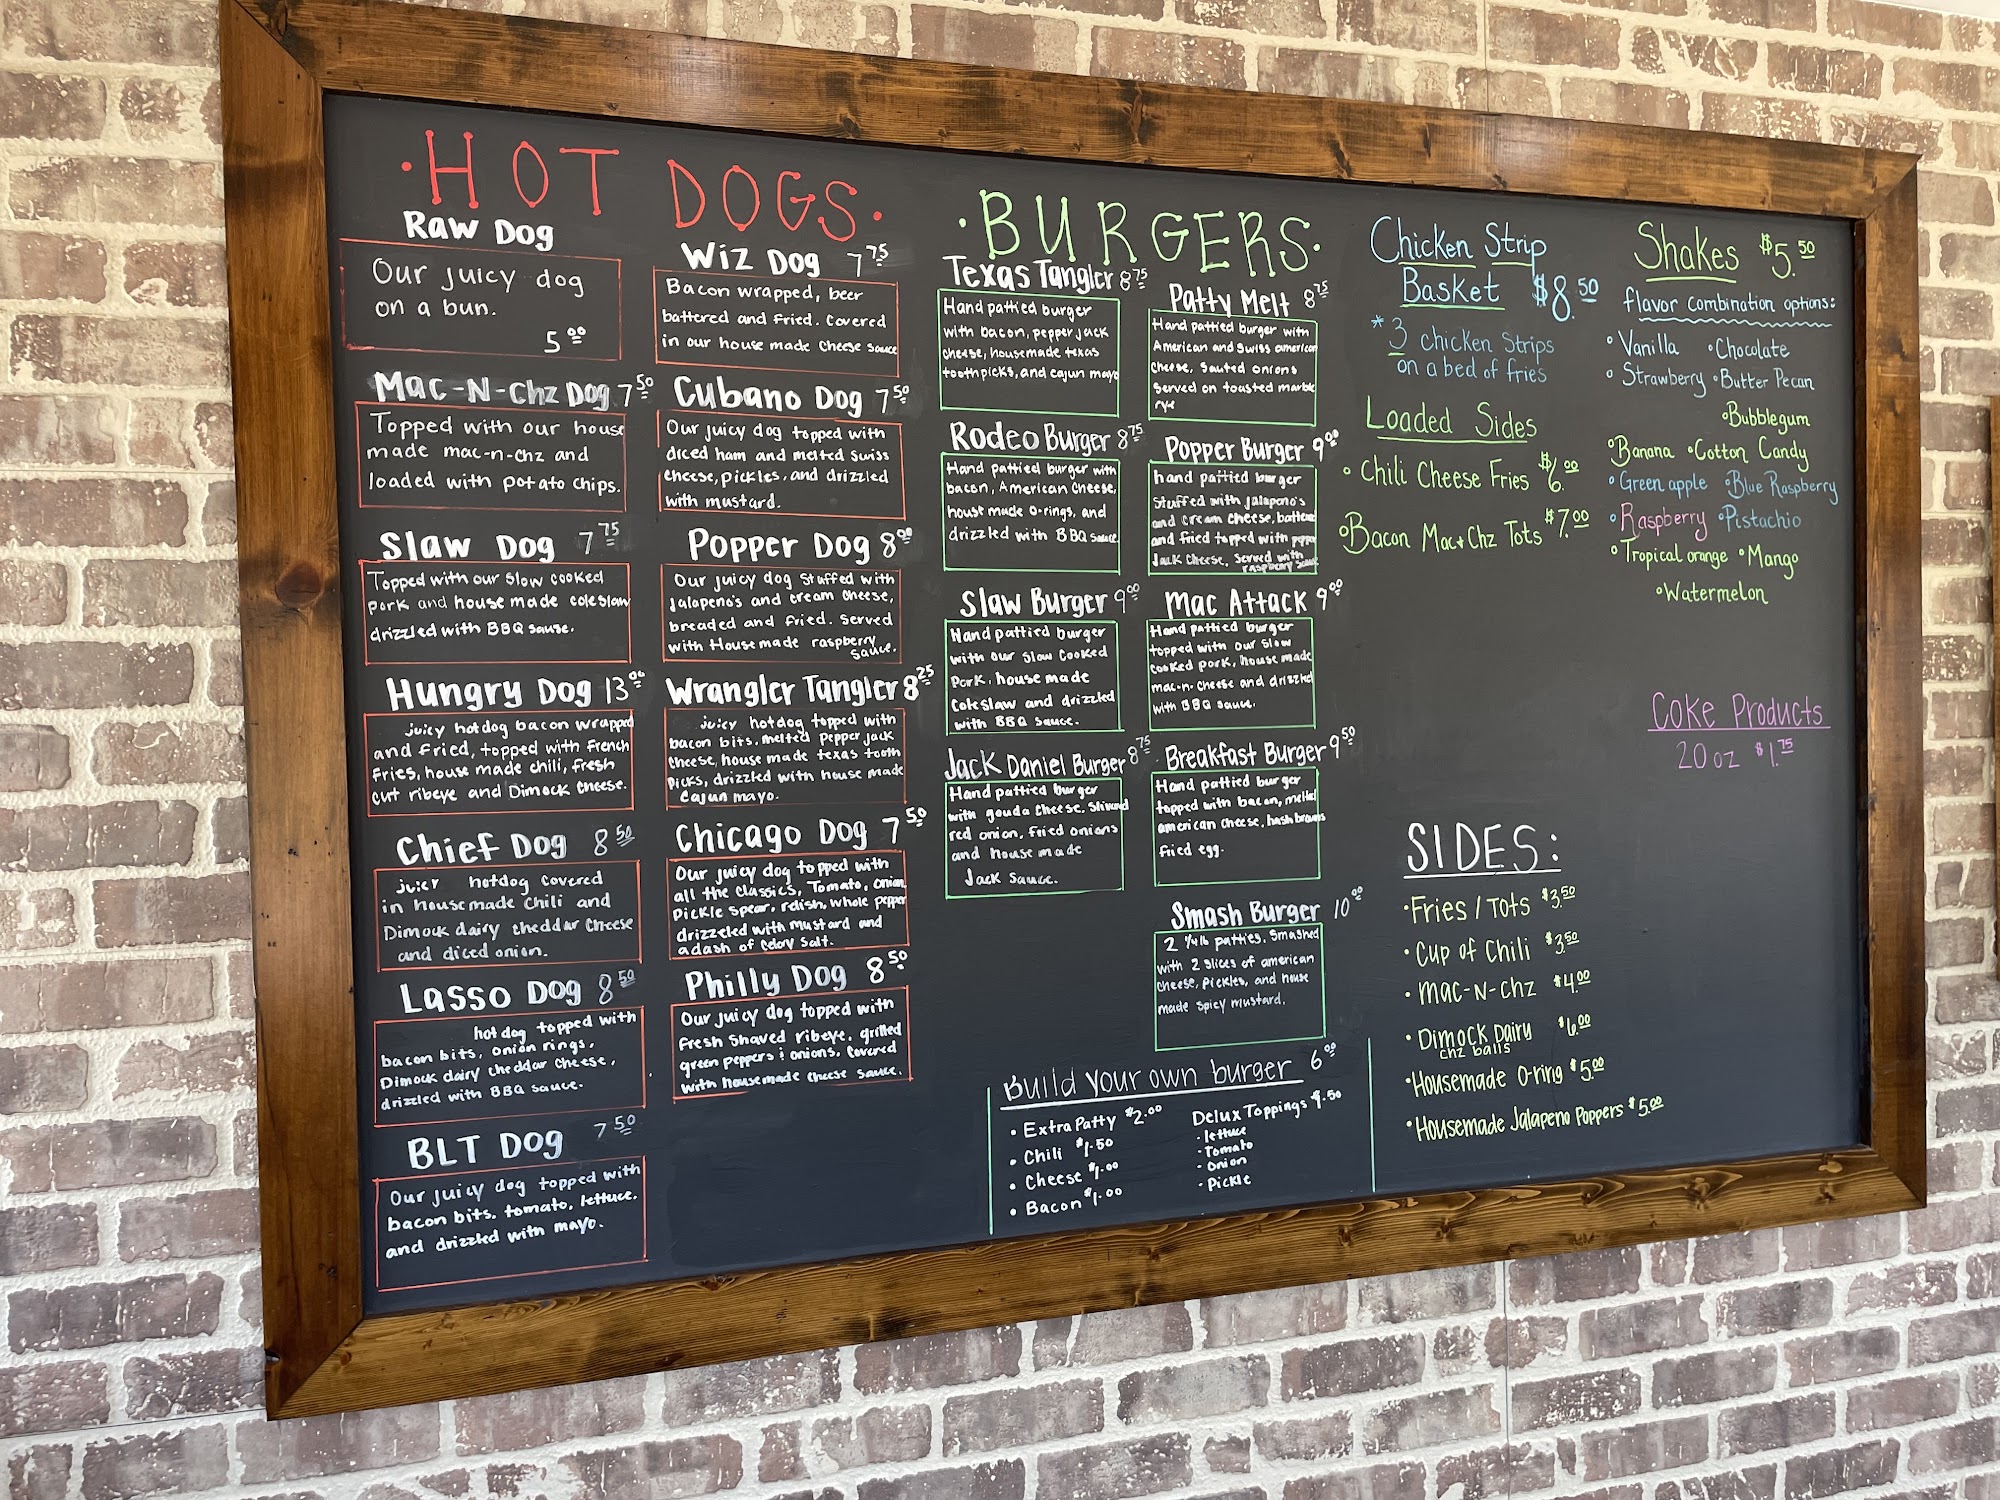 ·HOT DOGS·
Raw Dog
Our juicy dog
on a bun.
5.00
Mac-N-Chz Dog 7.50
Topped with our house
made mac-n-chz and
loaded with potato chips.
Slaw Dog 7.75
Topped with our slow cooked
pork and house made coleslaw
drizzled with BBQ sause.
Hungry Dog 13.00
juicy hotdog bacon wrapped
and fried, topped with French
fries, house made chili, fresh
cut ribeye and Dimock cheese.
Chief Dog 8.50
juicy hotdog covered
in housemade chili and
Dimock dairy cheddar cheese
and diced onion.
Lasso Dog 8.50
hot dog topped with
bacon bits, onion rings,
Dimock dairy cheddar cheese,
drizzled with BBQ sauce.
BLT Dog 7.50
Our juicy dog topped with
bacon bits, tomato, lettuce,
and drizzled with mayo.
Wiz Dog 7.75
Bacon wrapped, beer
battered and fried. Covered
in our house made cheese sauce
Cubano Dog 7.50
Our juicy dog topped with
diced ham and melted swiss
cheese, pickles, and drizzled
with mustard.
Popper Dog 8.00
Our juicy dog stuffed with
jalapeno's and cream cheese,
breaded and fried. Served
with Housemade raspberry
sauce.
Wrangler Tangler 8.25
juicy hotdog topped with
bacon bits, melted pepper jack
cheese, house made texas tooth
picks, drizzled with house made
cajun mayo.
Chicago Dog 7.50
Our juicy dog topped with
all the classics, Tomato, onion,
pickle spear, relish, whole pepper
drizzled with mustard and
a dash of celery salt.
Philly Dog 8.50
Our juicy dog topped with
fresh shaved ribeye, grilled
green peppers & onions, covered
with housemade cheese sauce.
·BURGERS·
Texas Tangler 8.75
Hand pattied burger
with bacon, pepper jack
cheese, housemade texas
toothpicks, and cajun mayo
Rodeo Burger 8.75
Hand pattied burger with
bacon, American cheese,
house made o-rings, and
drizzled with BBQ sauce
Slaw Burger 9.00
Hand pattied burger
with our slow cooked
pork, house made
coleslaw and drizzled
with BBQ sauce.
Jack Daniel Burger 8.75
Hand pattied burger
with gouda cheese,
red onion, fried onions
and house made
Jack sauce.
Patty Melt 8.75
Hand pattied burger with
American and swiss american
cheese, sauted onions
served on toasted marble
rye
Popper Burger 9.00
hand pattied burger
stuffed with jalapono's
and cream cheese,
and fried topped with pepper
Jack cheese, served with
raspberry sauce
Mac Attack 9.00
Hand pattied burger
topped with our slow
cooked pork, house made
mac-n-cheese and drizzled
with BBQ sauce.
Breakfast Burger 9.50
Hand pattied burger
topped with bacon, melted
american cheese, hash browns
fried egg.
Smash Burger 10.00
2 1/4 lb patties, smashed
with 2 slices of american
cheese, pickles, and house
made spicy mustard.
Build your own burger 6.00
• Extra Patty $2.00
• Chili $1.50
• Cheese $1.00
• Bacon $1.00
Delux Toppings $.50
- lettuce
- Tomato
- Onion
- Pickle
Chicken Strip
Basket $8.50
* 3 chicken strips
on a bed of fries
Loaded Sides
• Chili Cheese Fries $6.00
• Bacon Mac+Chz Tots $7.00
SIDES:
• Fries / Tots $3.50
• Cup of Chili $3.50
• Mac-N-Chz $4.00
• Dimock Dairy $6.00
chz balls
• Housemade O-ring $5.00
• Housemade Jalapeno Poppers $5.00
Shakes $5.50
flavor combination options:
• Vanilla • Chocolate
• Strawberry • Butter Pecan
• Bubblegum
• Banana • Cotton Candy
• Green apple Blue Raspberry
• Raspberry • Pistachio
• Tropical orange • Mango
• Watermelon
Coke Products
20 oz $1.75